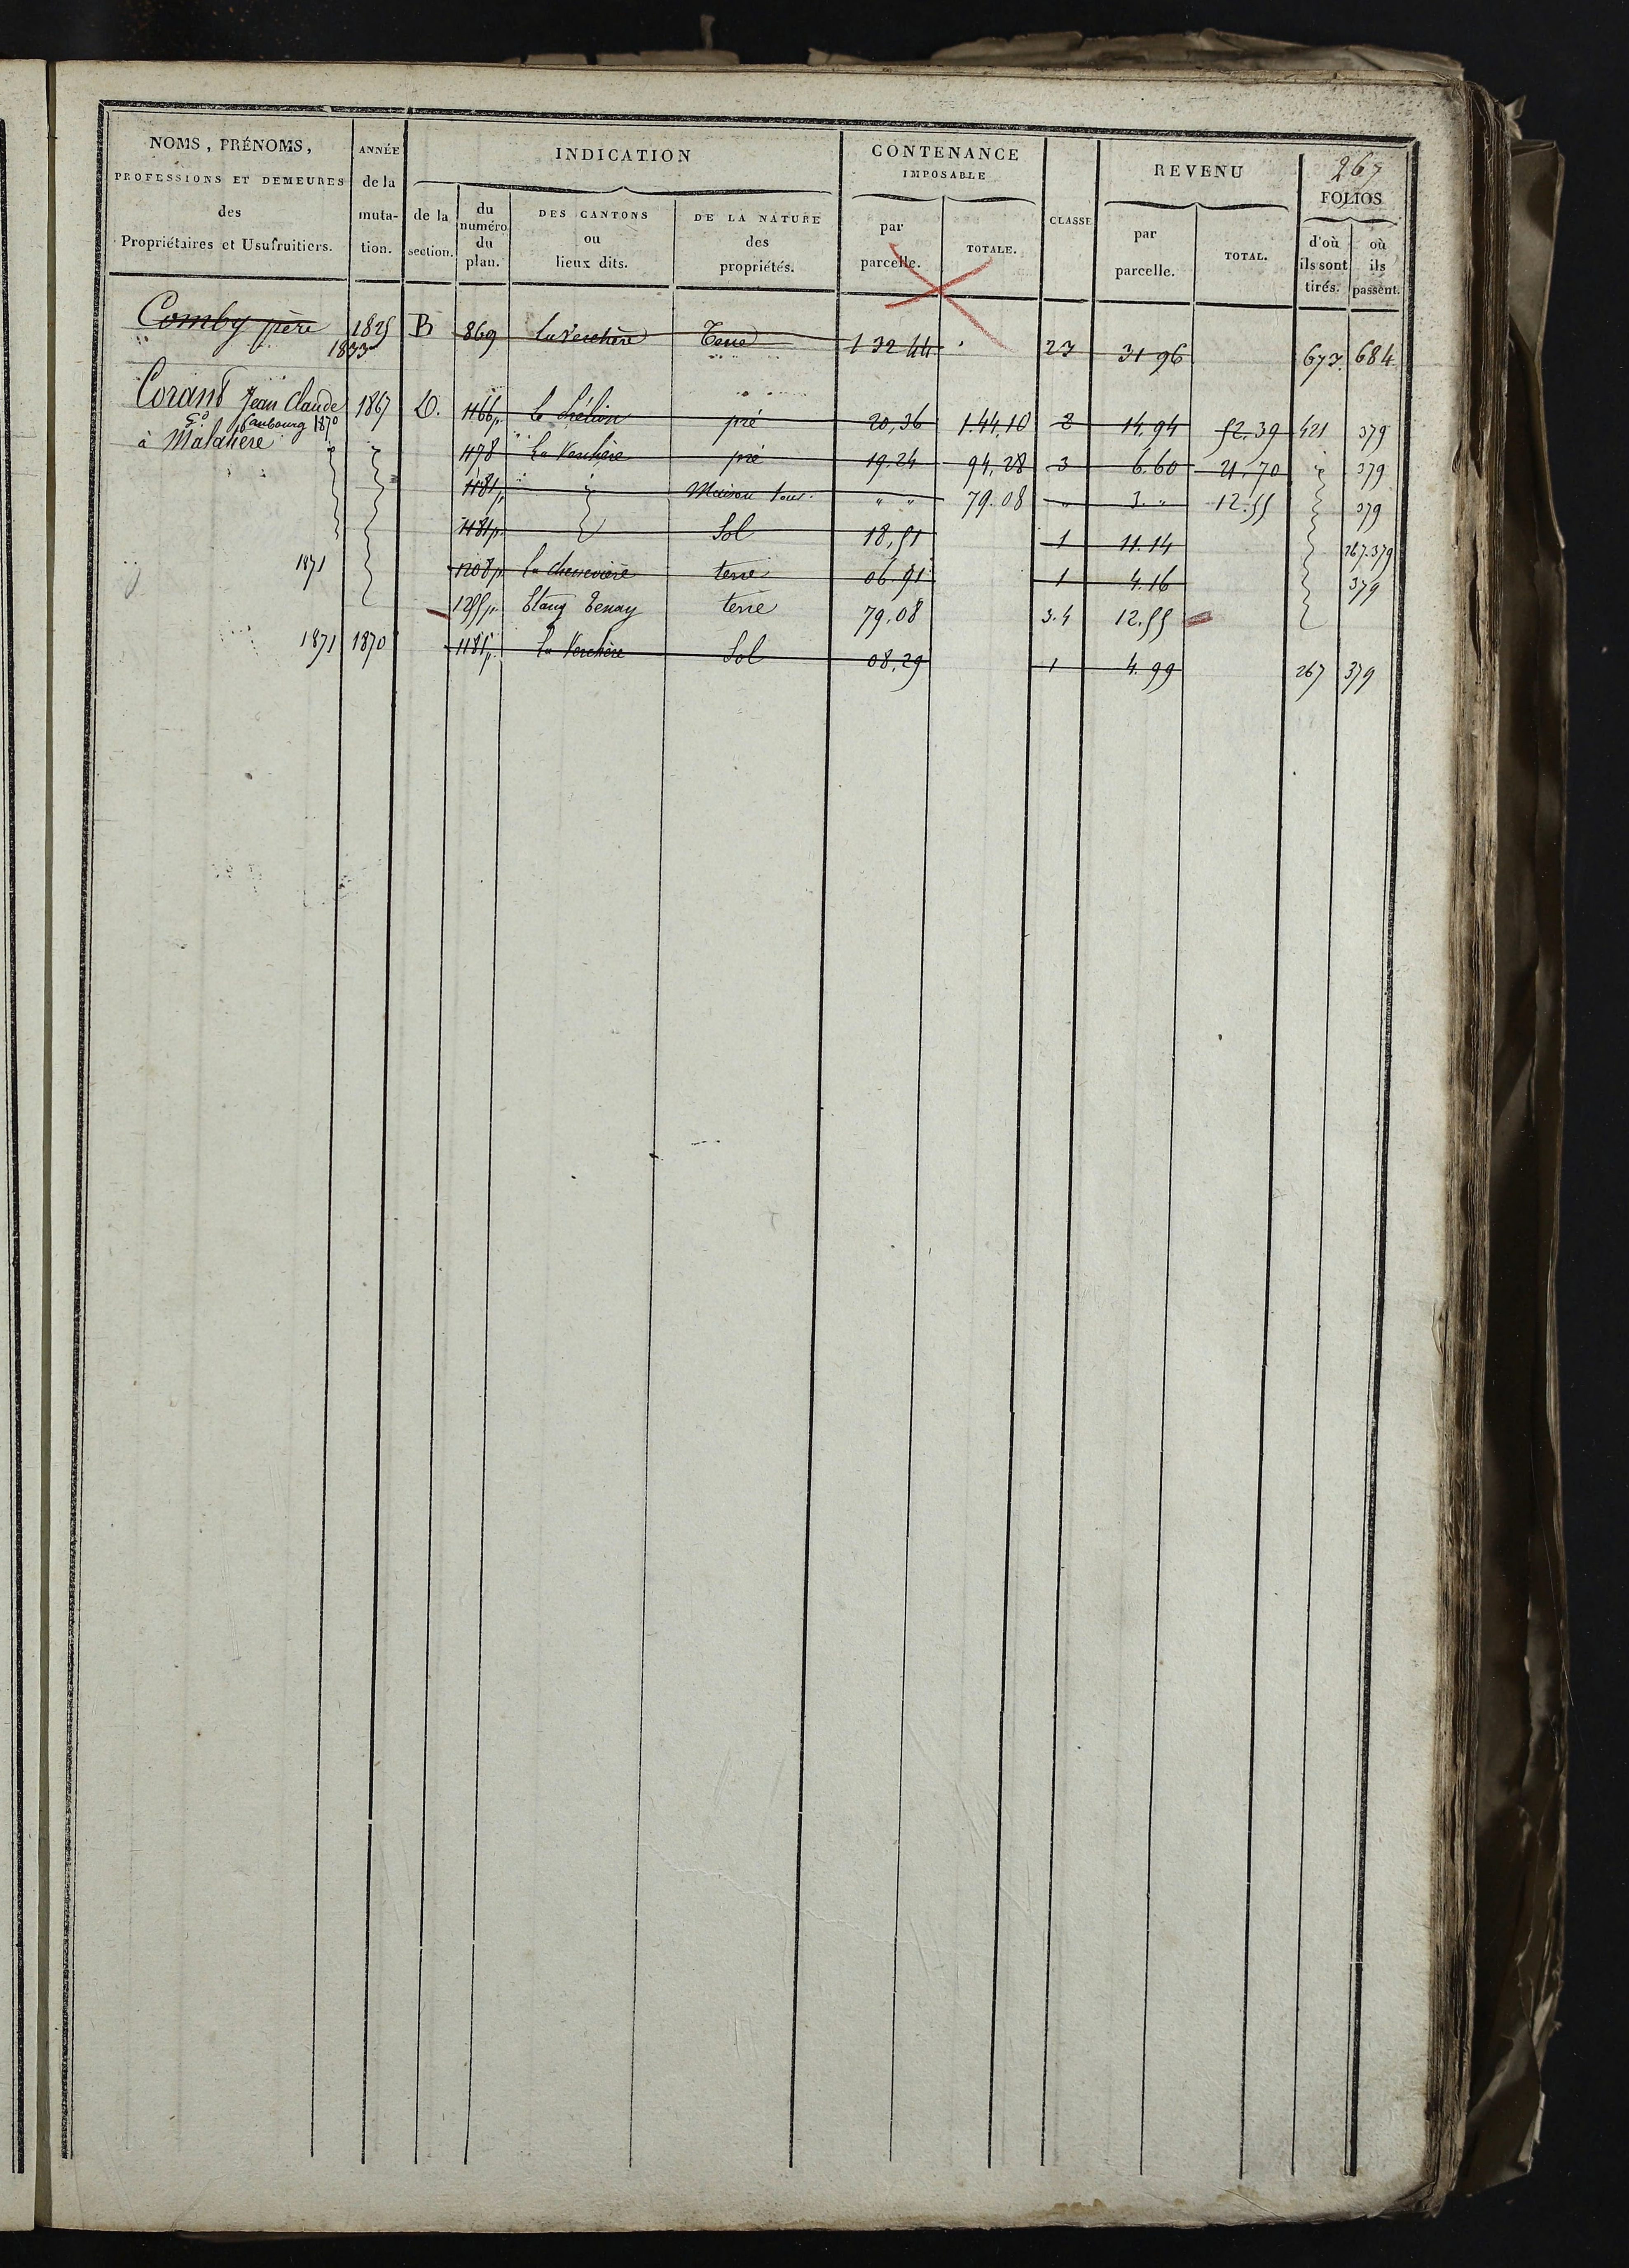 267
NOMS, PRÉNOMS, PROFESSIONS ET DEMEURES des Propriétaires et Usufruitiers.
ANNÉE de la muta- tion.
INDICATION
de la section.
du numéro du plan.
DES CANTONS ou lieux dits.
DE LA NATURE des propriétés.
CONTENANCE IMPOSABLE
par parcelle.
TOTALE.
CLASSE
REVENU
par parcelle.
TOTAL.
FOLIOS
d'où ils sont tirés.
où ils passent.
Comby père 1825 B 869 La Verchère Terre 1 32 44 23 31 96 673. 684
1833
Corant Jean Claude 1867 D. 1166p. pré 20,36 1.44,10 2 14.94 52.39 421 379
faubourg 1870
à Malatière 1178 La Verchère pré 19.24 94,28 3 6.60 21.70 379
1181p. Maison " " 79.08 " 3. " 12.55 379
1181p. Sol 18,51 1 11.14 267.379
1871 1208p. La Chenevière terre 06.91 1 4.16 379
1255p. Etang Tenay terre 79.08 3.4 12.55
1871 1870 1181p. La Verchère Sol 08,29 1 4.99 267 379